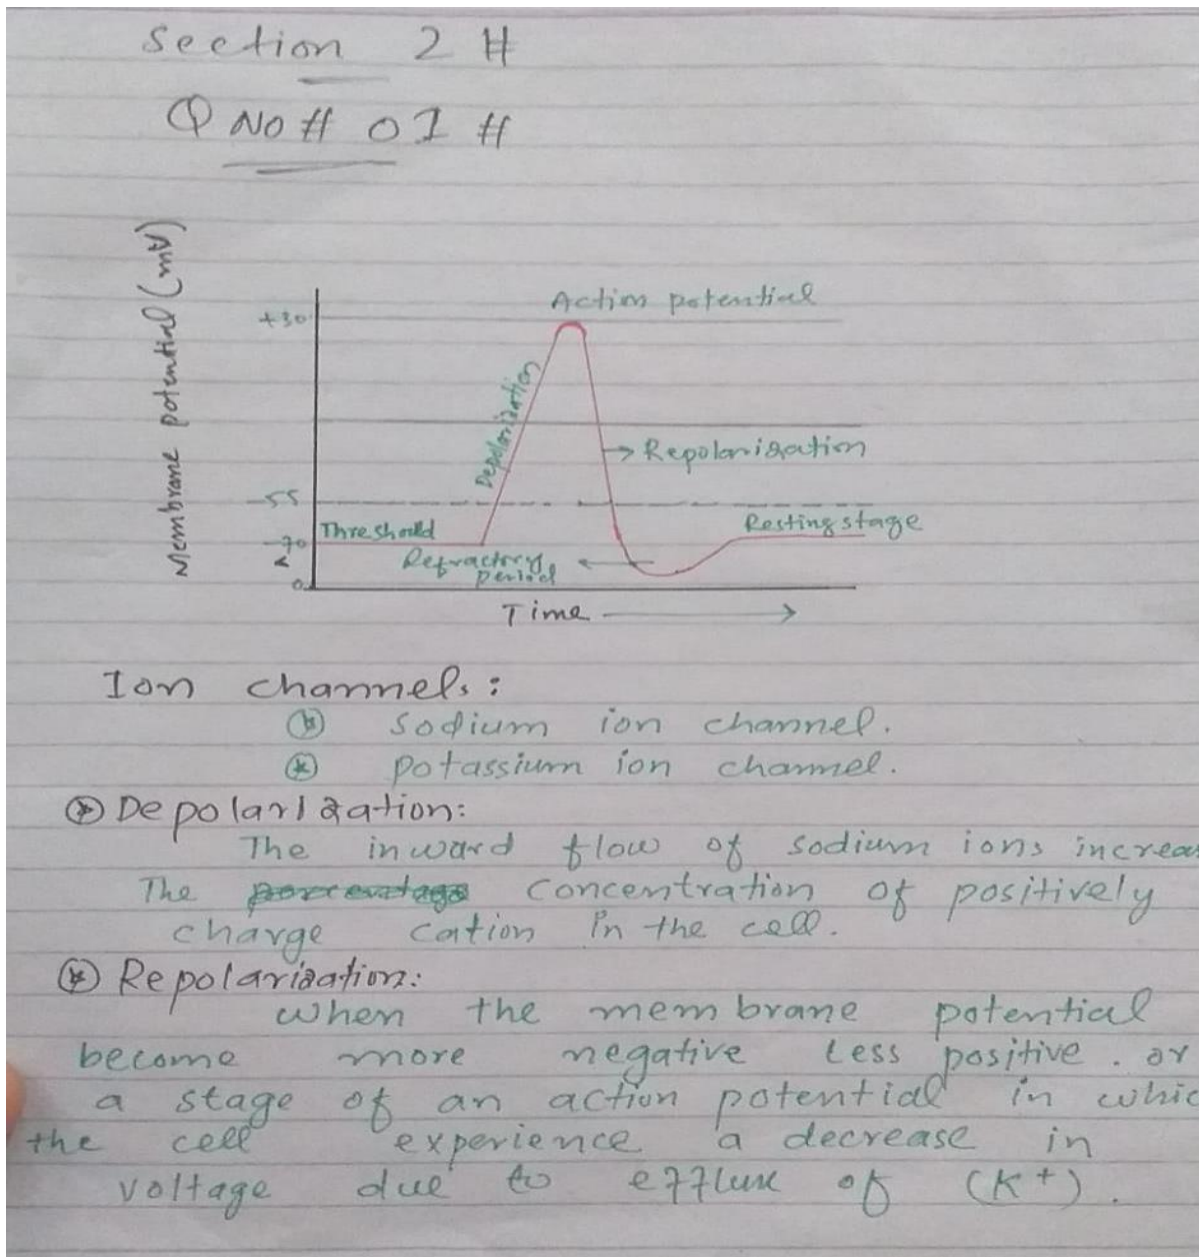 Section 2 #
Q No # 01 #
Membrane potential (mV)
Action potential
+30
Depolarization
Repolarization
-55
Threshold
Resting stage
-70
Refractory
period
0
Time
Ion channels:
Sodium ion channel.
potassium ion channel.
Depolarization:
The inward flow of sodium ions increas
The concentration of positively
charge cation in the cell.
Repolarization:
when the membrane potential
become more negative less positive . or
a stage of an action potential in whic
the cell experience a decrease in
voltage due to efflux of (K+).